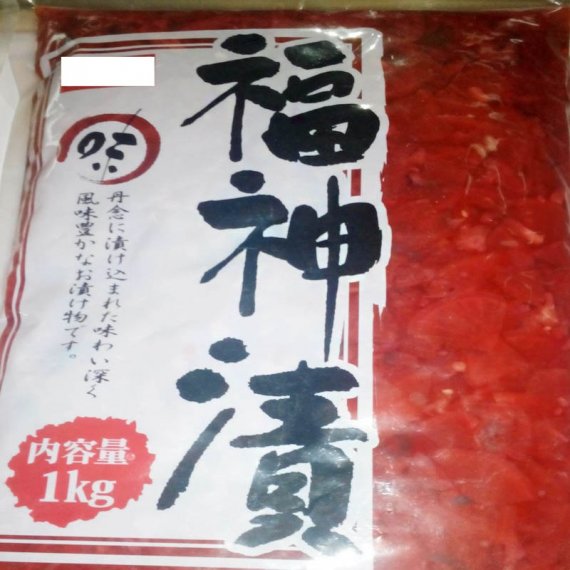 福神漬
味
丹念に漬け込まれた味わい深く
風味豊かなお漬け物です。
内容量
1kg